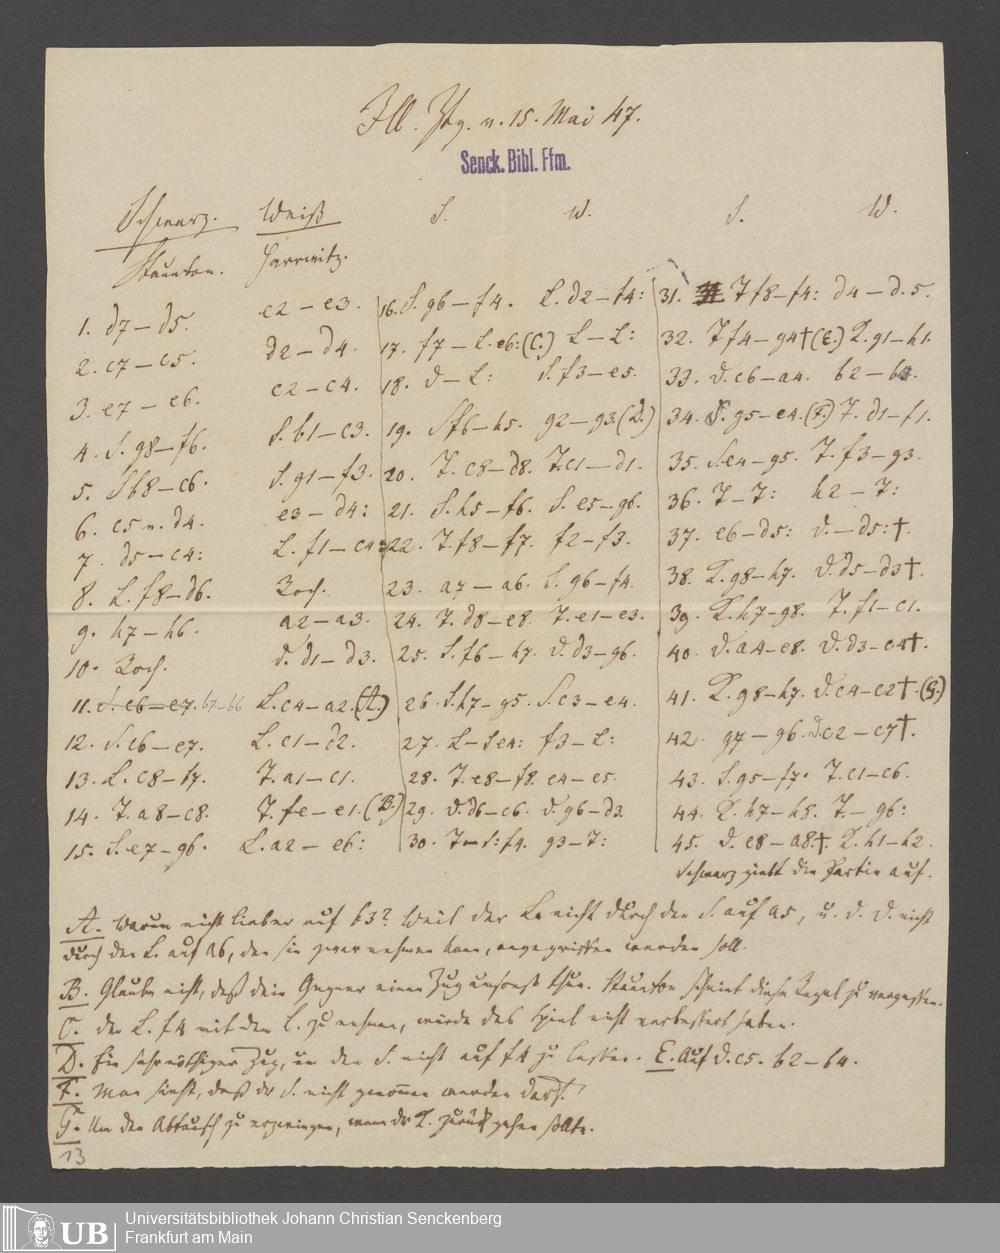 Ill. Ztg. v. 15. Mai 47.
Senck. Bibl. Ffm.
Schwarz. Weiß
Staunton. Harrwitz.
1. d7 – d5. e2 – e3.
2. c7 – c5. d2 – d4.
3. e7 – e6. c2 – c4.
4. S. g8 – f6. S. b1 – c3.
5. S b8 – c6. S. g1 – f3.
6. c5 n. d4. e3 – d4:
7. d5 – c4: L. f1 – c4:
8. L. f8 – d6. Roch.
9. h7 – h6. a2 – a3.
10. Roch. D. d1 – d3.
11. S. c6 – e7. b7 – b6 L. c4 – a2. (A.)
12. S. c6 – e7. L. c1 – d2.
13. L. c8 – b7. T. a1 – c1.
14. T. a8 – c8. T. fe – e1. (B.)
15. S. e7 – g6. L. a2 – e6:
S. W.
16. S. g6 – f4. L. d2 – f4:
17. f7 – L. e6: (C.) L – L:
18. D – L: S. f3 – e5.
19. S f6 – h5. g2 – g3. (D.)
20. T. c8 – d8. T. c1 – d1.
21. S. h5 – f6. S. e5 – g6.
22. T. f8 – f7. f2 – f3.
23. a7 – a6. S. g6 – f4.
24. T. d8 – e8. T. e1 – e3.
25. S. f6 – h7. D. d3 – g6.
26. S. h7 – g5. S. c3 – e4.
27. L – S e4: f3 – L:
28. T. e8 – f8. e4 – e5.
29. D. d6 – c6. D. g6 – d3.
30. T – S: f4. g3 – T:
S. W.
31. T f8 – f4: d4 – d. 5.
32. T f4 – g4† (E.) K. g1 – h1.
33. D. c6 – a4. b2 – b3.
34. S. g5 – e4. (F.) T. d1 – f1.
35. S. e4 – g5. T. f3 – g3.
36. T – T: h2 – T:
37. e6 – d5: D. – d5:†.
38. K. g8 – h7. D. d5 – d3†.
39. K. h7 – g8. T. f1 – c1.
40. D. a4 – e8. D. d3 – c4†.
41. K. g8 – h7. D. c4 – c2†. (G.)
42. g7 – g6. D. c2 – c7†.
43. S. g5 – f7. T. c1 – c6.
44. K. h7 – h8. T. – g6:
45. D. e8 – a8.†. K. h1 – h2.
Schwarz giebt die Partie auf.
A. Warum nicht lieber auf b3? Weil der L. nicht durch den S. auf a5, u. d. D. nicht
durch den L. auf a6, den sie zwar nehmen kann, angegriffen werden soll.
B. Glaube nicht, daß dein Gegner einen Zug umsonst thue. Staunton scheint diese Regel zu vergessen.
C. den L. f4 mit dem L. zu nehmen, würde das Spiel nicht verbessert haben.
D. Ein sehr nöthiger Zug, um den S. nicht auf f4 zu lassen. E. Auf D. c5. b2 – b4.
F. Man sieht, daß der S. nicht genommen werden darf.
G. Um den Abtausch zu erzwingen, wenn der K. zurück gehen sollte.
13
UB
Universitätsbibliothek Johann Christian Senckenberg
Frankfurt am Main